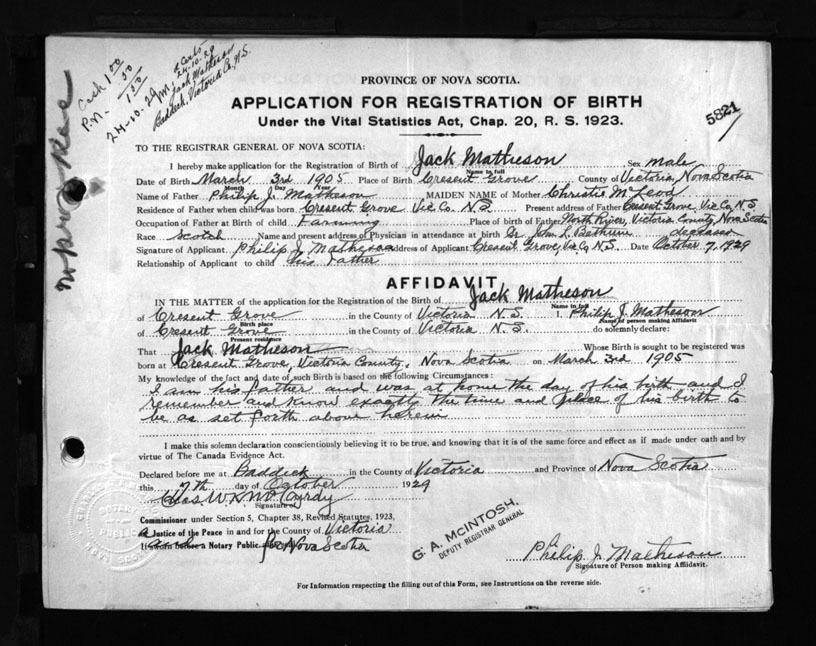 No Prov Rec
Cash 1.00
P.N. .50
1.50
24-10-29
2 Certs
24-10-29
Jack Matheson
Baddeck, Victoria Co, N.S.
PROVINCE OF NOVA SCOTIA.
APPLICATION FOR REGISTRATION OF BIRTH
Under the Vital Statistics Act, Chap. 20, R. S. 1923.
5821
TO THE REGISTRAR GENERAL OF NOVA SCOTIA:
I hereby make application for the Registration of Birth of Jack Matheson Sex male
Name in full
Date of Birth March 3rd 1905 Place of Birth Cresent Grove County of Victoria Nova Scotia
Month Day Year
Name of Father Philip J. Matheson MAIDEN NAME of Mother Christie McLeod
Residence of Father when child was born Cresent Grove Vic Co. N.S. Present address of Father Cresent Grove, Vic Co, N S
Occupation of Father at Birth of child Farming Place of birth of Father North River, Victoria County, Nova Scotia
Race Scotch Name and present address of Physician in attendance at birth Dr. John L. Bethune deceased
Signature of Applicant Philip J Matheson address of Applicant Cresent Grove, Vic Co, N.S. Date October 7, 1929
Relationship of Applicant to child his Father
AFFIDAVIT
IN THE MATTER of the application for the Registration of the Birth of Jack Matheson
Name in full
of Cresent Grove in the County of Victoria N.S. I, Philip J. Matheson
Birth place Name of person making Affidavit
of Cresent Grove in the County of Victoria N.S. do solemnly declare:
Present residence
That Jack Matheson Whose Birth is sought to be registered was
born at Cresent Grove, Victoria County, Nova Scotia on March 3rd 1905
My knowledge of the fact and date of such Birth is based on the following Circumstances:
I am his father and was at home the day of his birth and I
remember and know exactly the time and place of his birth to
be as set forth above herein
I make this solemn declaration conscientiously believing it to be true, and knowing that it is of the same force and effect as if made under oath and by
virtue of The Canada Evidence Act.
Declared before me at Baddeck in the County of Victoria and Province of Nova Scotia
this 7th day of October 1929
Chas. W. K. McCurdy
Signature of
Commissioner under Section 5, Chapter 38, Revised Statutes, 1923,
a Justice of the Peace in and for the County of Victoria
before a Notary Public. for Nova Scotia
G. A. MCINTOSH,
DEPUTY REGISTRAR GENERAL
Philip J. Matheson
Signature of Person making Affidavit.
For Information respecting the filling out of this Form, see Instructions on the reverse side.